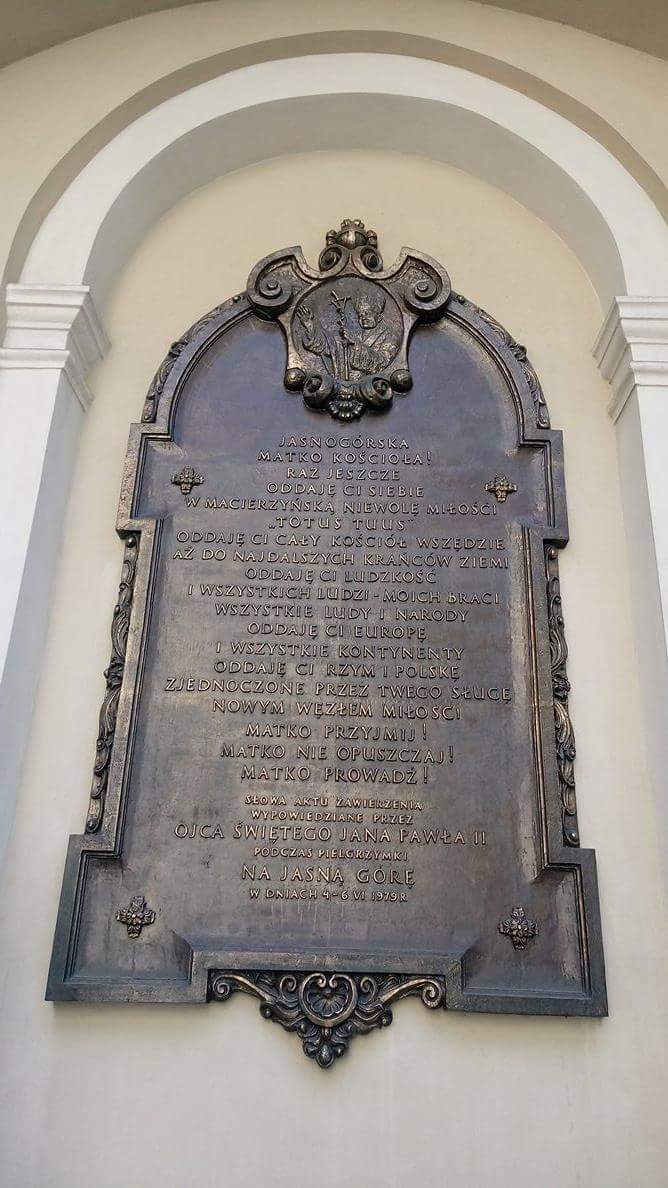 JASNOGÓRSKA
MATKO KOŚCIOŁA!
RAZ JESZCZE
ODDAJĘ CI SIEBIE
W MACIERZYŃSKĄ NIEWOLĘ MIŁOŚCI
„TOTUS TUUS”
ODDAJĘ CI CAŁY KOŚCIÓŁ WSZĘDZIE
AŻ DO NAJDALSZYCH KRAŃCÓW ZIEMI
ODDAJĘ CI LUDZKOŚĆ
I WSZYSTKICH LUDZI - MOICH BRACI
WSZYSTKIE LUDY I NARODY
ODDAJĘ CI EUROPĘ
I WSZYSTKIE KONTYNENTY
ODDAJĘ CI RZYM I POLSKĘ
ZJEDNOCZONE PRZEZ TWEGO SŁUGĘ
NOWYM WĘZŁEM MIŁOŚCI
MATKO PRZYJMIJ!
MATKO NIE OPUSZCZAJ!
MATKO PROWADŹ!
SŁOWA AKTU ZAWIERZENIA
WYPOWIEDZIANE PRZEZ
OJCA ŚWIĘTEGO JANA PAWŁA II
PODCZAS PIELGRZYMKI
NA JASNĄ GÓRĘ
W DNIACH 4-6 VI 1979R